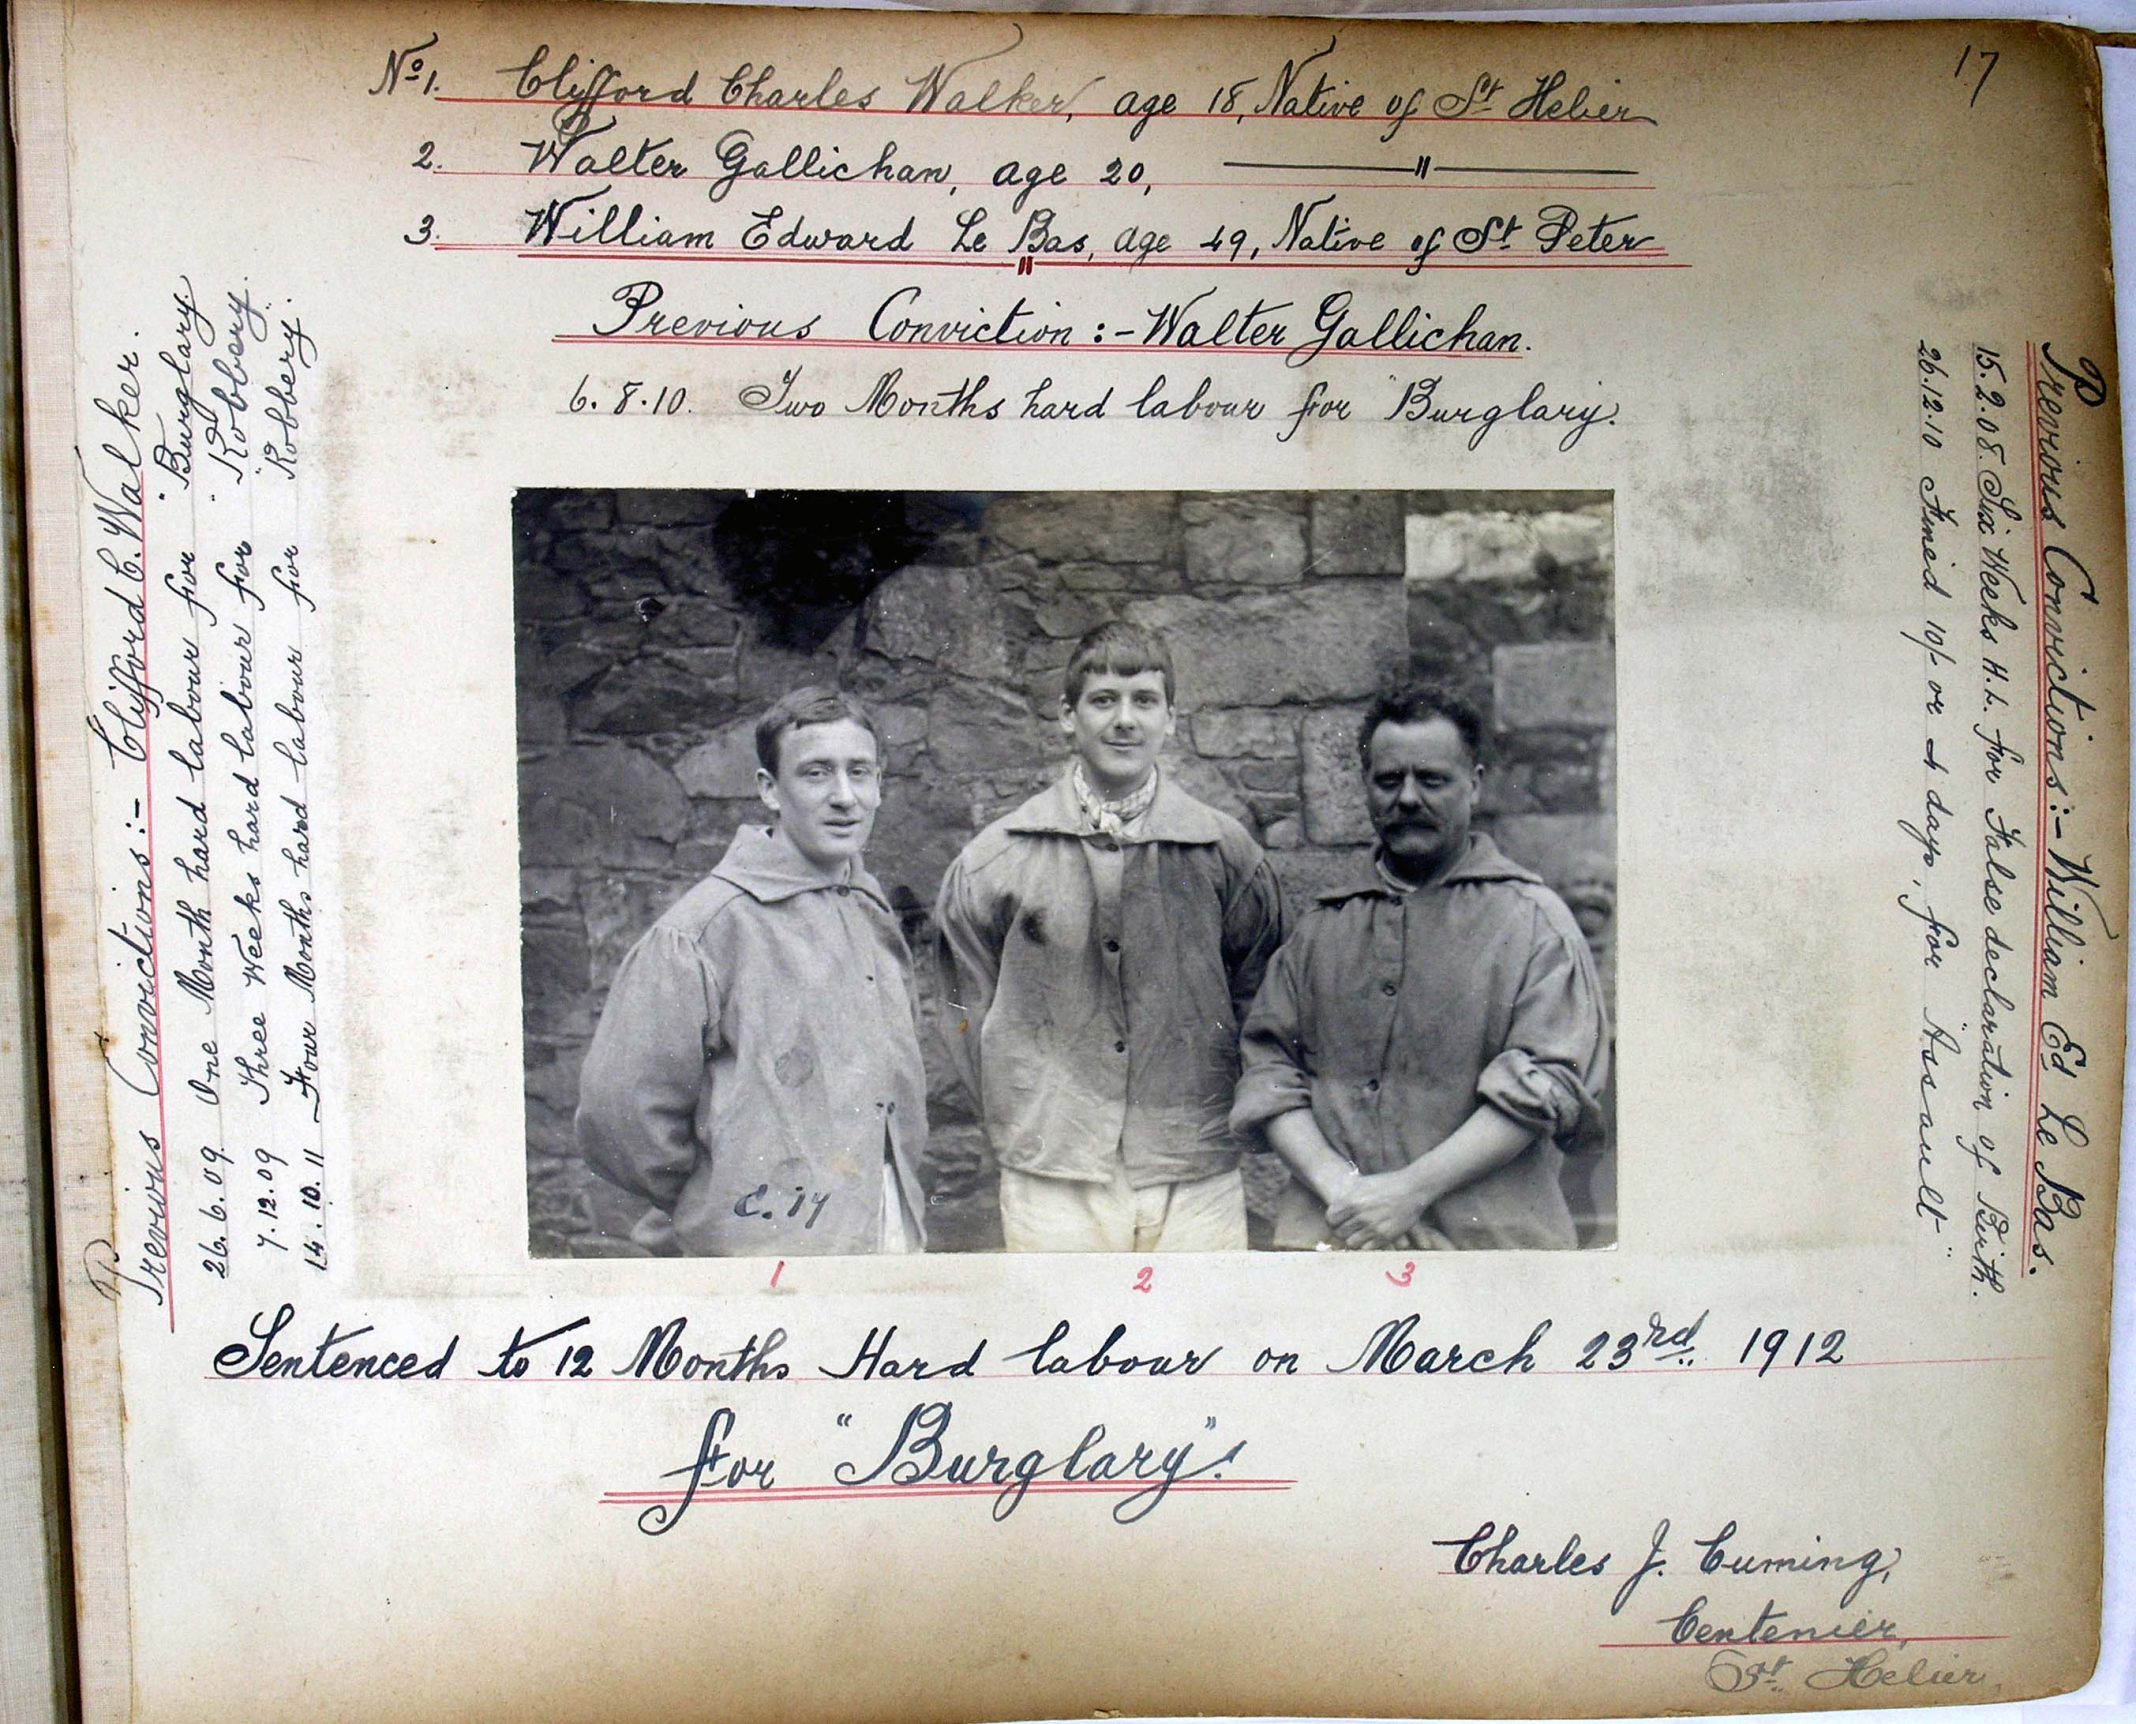 17
No 1. Clifford Charles Walker, age 18, Native of St Helier
2. Walter Gallichan, age 20, ——"——
3. William Edward Le Bas, age 49, Native of St Peter
"
Previous Conviction :- Walter Gallichan.
6.8.10. Two Months hard labour for "Burglary.
Previous Convictions :- Clifford C. Walker.
26.6.09 One Month hard labour for "Burglary"
7.12.09 Three Weeks hard labour for "Robbery"
14.10.11 Four Months hard labour for Robbery.
Previous Convictions :- William Ed Le Bas.
15.2.08. Six Weeks H.L. for False declaration of Birth.
26.12.10 Fined 10/- or 4 days, for "Assault"
C. 17
1 2 3
Sentenced to 12 Months Hard labour on March 23rd 1912
for "Burglary".
Charles J. Cuming,
Centenier,
St. Helier.